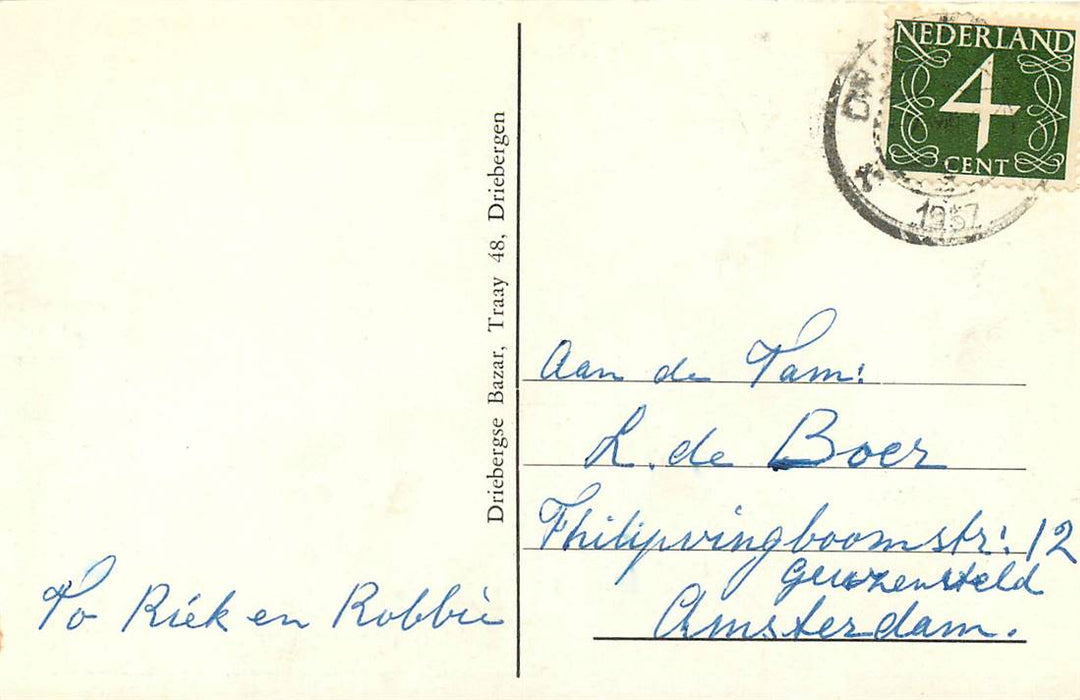 NEDERLAND
4
CENT
1957
Driebergse Bazar, Traay 48, Driebergen
Aan de Fam:
L. de Boer
Philipvingboomstr: 12
Geuzenveld
Amsterdam.
To Riek en Robbie